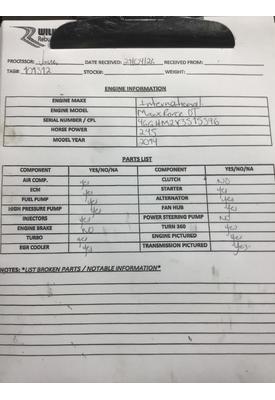 WILL
Rebu
PROCESSOR: DATE RECEIVED: 29/04/26 RECEIVED FROM:
TAG#: STOCK#: WEIGHT:
ENGINE INFORMATION
ENGINE MAKE International
ENGINE MODEL MaxxForce DT
SERIAL NUMBER / CPL
HORSE POWER 245
MODEL YEAR 2014
PARTS LIST
COMPONENT YES/NO/NA COMPONENT YES/NO/NA
AIR COMP. yes CLUTCH NO
ECM yes STARTER yes
FUEL PUMP yes ALTERNATOR yes
HIGH PRESSURE PUMP yes FAN HUB yes
INJECTORS yes POWER STEERING PUMP NO
ENGINE BRAKE NO TURN 360 yes
TURBO yes ENGINE PICTURED yes
EGR COOLER yes TRANSMISSION PICTURED yes
NOTES: *LIST BROKEN PARTS / NOTABLE INFORMATION*